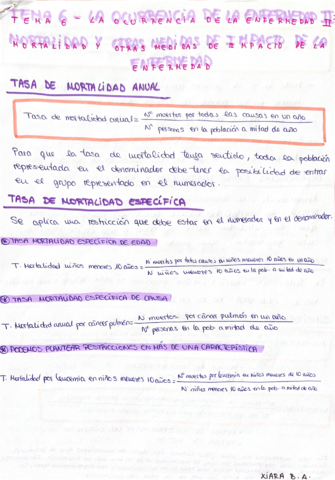 TEMA 6 - LA OCURRENCIA DE LA ENFERMEDAD II:
MORTALIDAD Y OTRAS MEDIDAS DE IMPACTO DE LA
ENFERMEDAD
TASA DE MORTALIDAD ANUAL
Tasa de mortalidad anual = Nº muertes por todas las causas en un año
Nº personas en la población a mitad de año
Para que la tasa de mortalidad tenga sentido, toda la población
representada en el denominador debe tener la posibilidad de entrar
en el grupo representado en el numerador.
TASA DE MORTALIDAD ESPECÍFICA
Se aplica una restricción que debe estar en el numerador y en el denominador.
TASA MORTALIDAD ESPECÍFICA DE EDAD
T. Mortalidad niños menores 10 años = Nº muertes por todas causas en niños menores 10 años en un año
Nº niños menores 10 años en la pob. a mitad de año
TASA MORTALIDAD ESPECÍFICA DE CAUSA
T. Mortalidad anual por cáncer pulmón = Nº muertes por cáncer pulmón en un año
Nº personas en la pob. a mitad de año
PODEMOS PLANTEAR RESTRICCIONES EN MÁS DE UNA CARACTERÍSTICA
T. Mortalidad por leucemia en niños menores 10 años = Nº muertes por leucemia en niños menores de 10 años
Nº niños menores 10 años en la pob. a mitad de año
XIARA B. A.